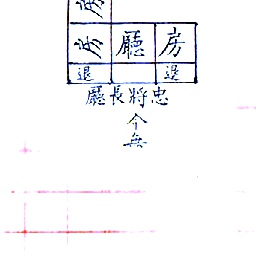 房
房 廳 房
退 退
廳長將忠
今無